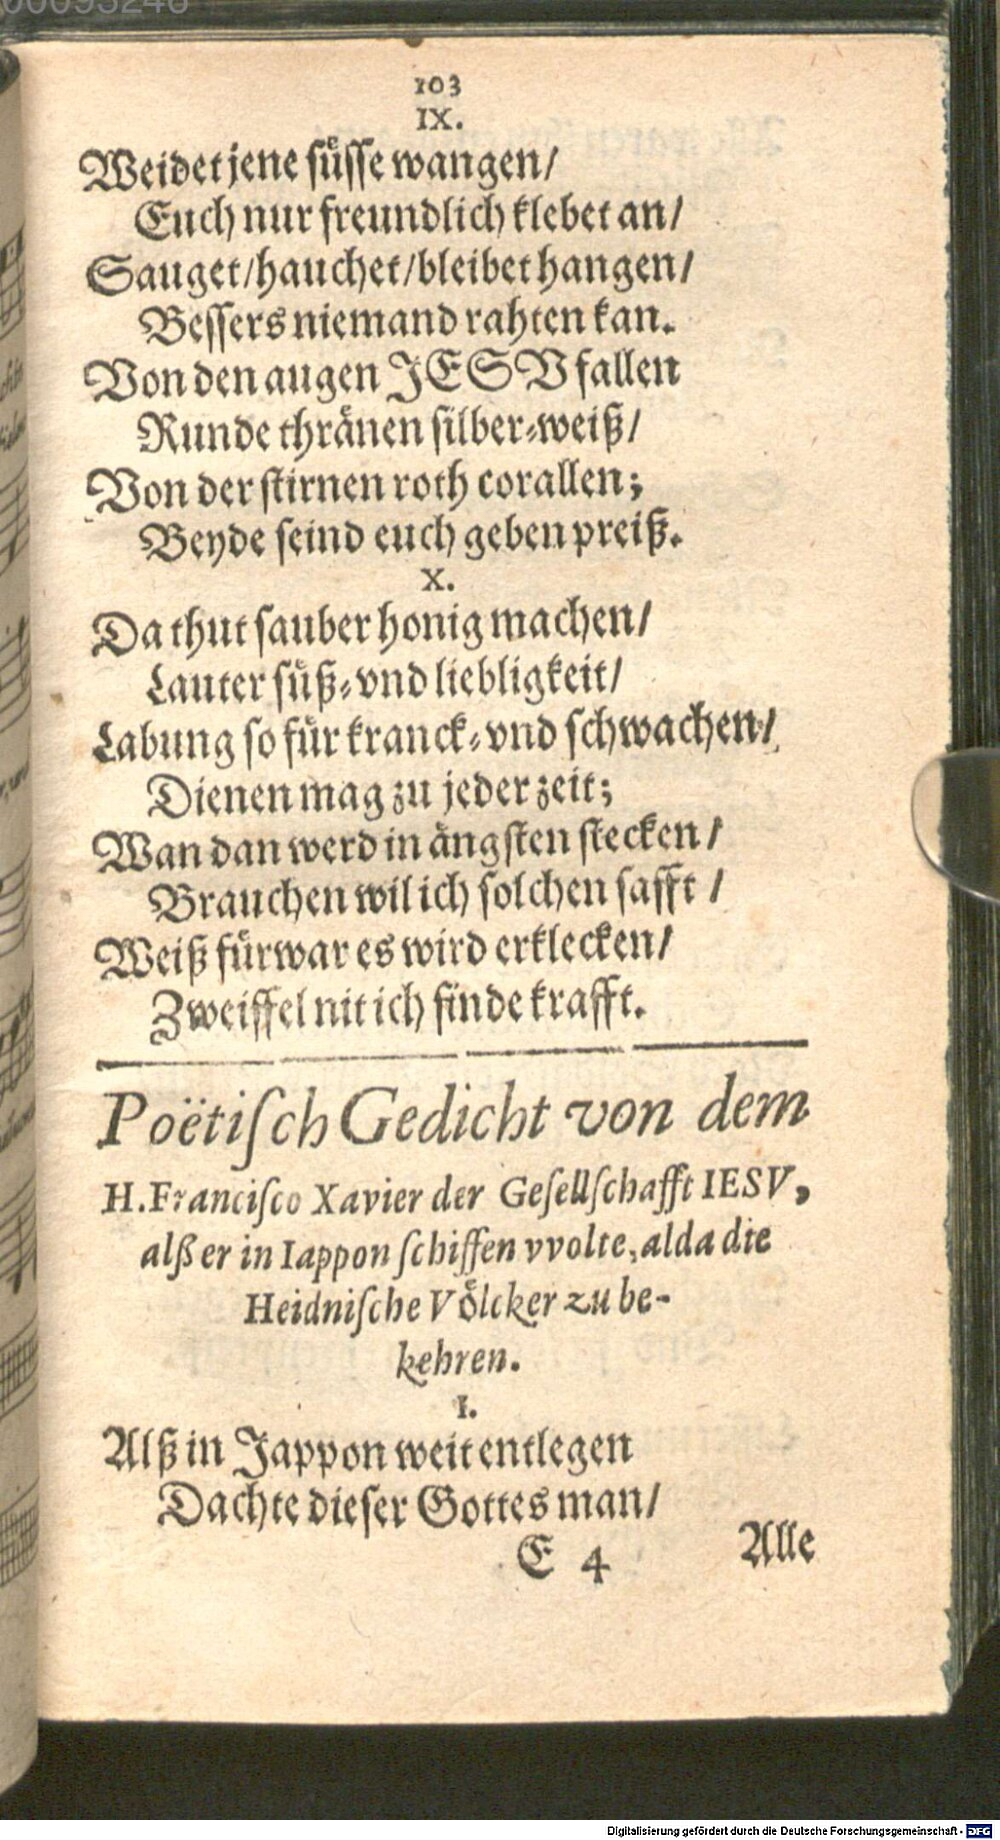 00095246
103
IX.
Weidet jene süsse wangen/
Euch nur freundlich klebet an/
Sauget/hauchet/bleibet hangen/
Bessers niemand rahten kan.
Von den augen JESV fallen
Runde thränen silber-weiß/
Von der stirnen roth corallen;
Beyde seind euch geben preiß.
X.
Da thut sauber honig machen/
Lauter süß- vnd liebligkeit/
Labung so für kranck- vnd schwachen/
Dienen mag zu jeder zeit;
Wan dan werd in ängsten stecken/
Brauchen wil ich solchen safft/
Weiß fürwar es wird erklecken/
Zweiffel nit ich finde krafft.
Poëtisch Gedicht von dem
H. Francisco Xavier der Gesellschafft IESV,
alß er in Iappon schiffen vvolte, alda die
Heidnische Völcker zu be-
kehren.
I.
Alß in Jappon weit entlegen
Dachte dieser Gottes man/
E 4 Alle
Digitalisierung gefördert durch die Deutsche Forschungsgemeinschaft - DFG